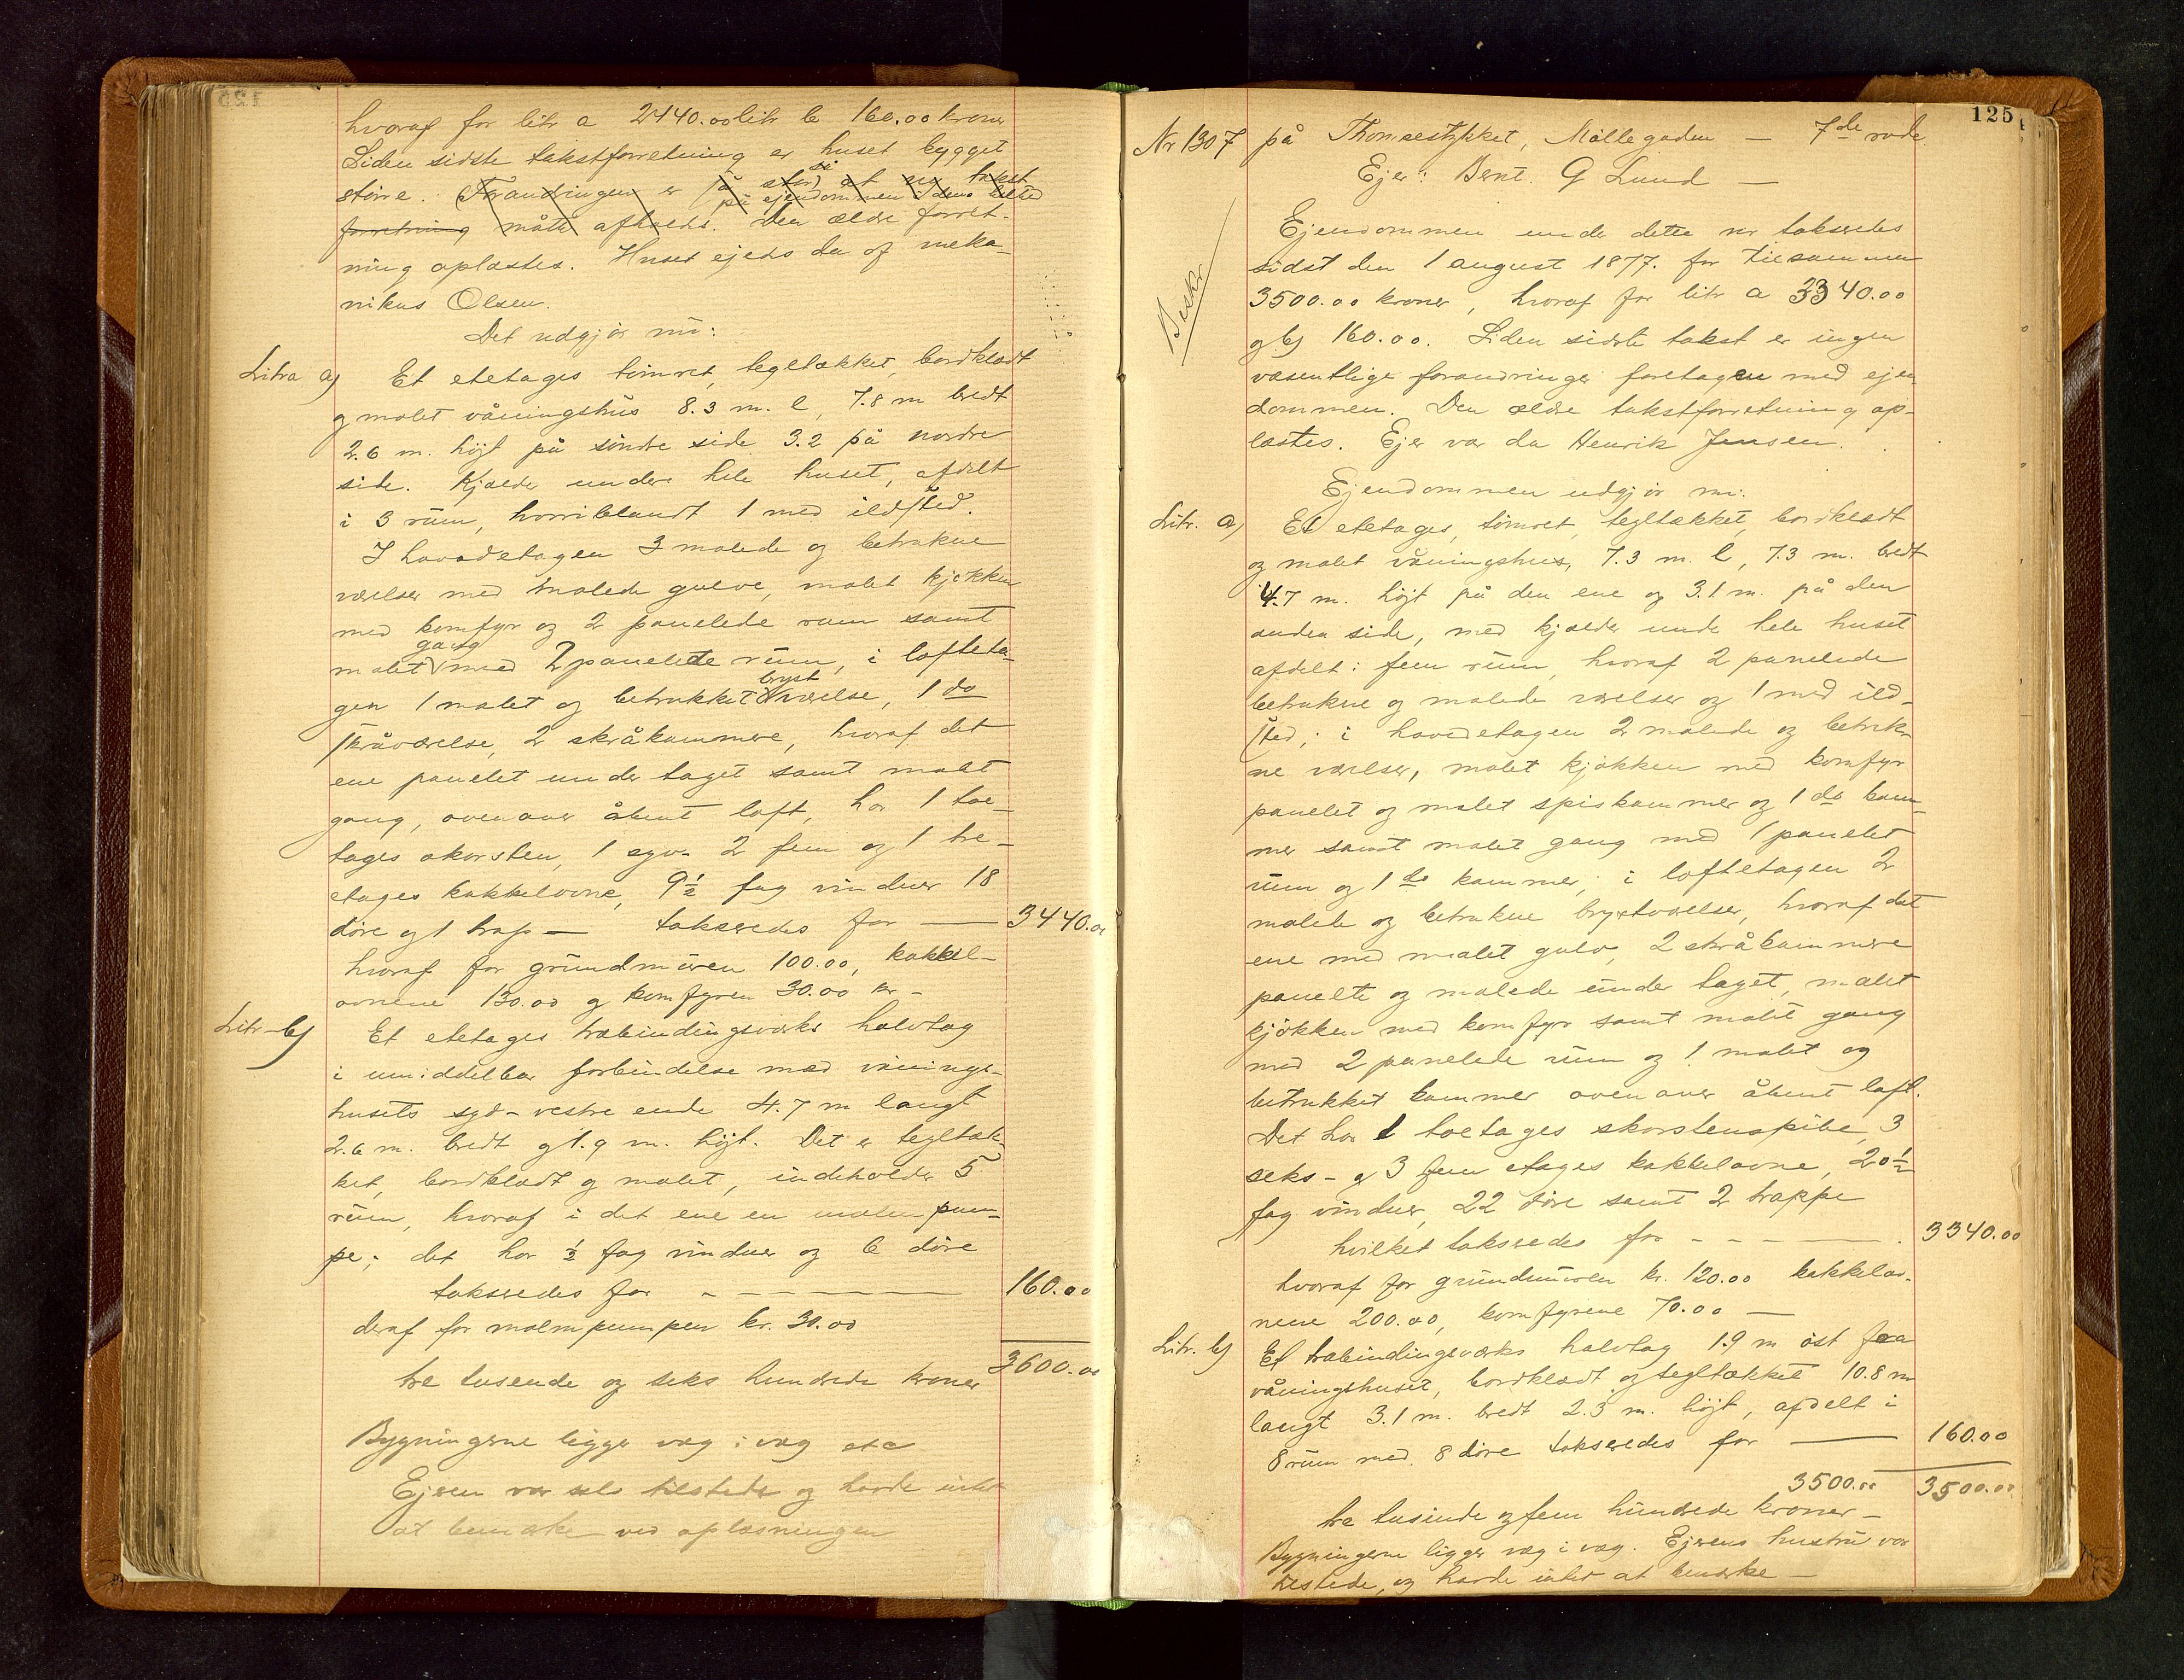 hvoraf for litr a 2440.00 litr b 160.00 kroner
Siden sidste takstforretning er huset bygget
større. Forandringen er så stor, at ny takst
på ejendommen i dens helhed
forretning måtte afholdes. Den ældre forret-
ning oplæstes. Huset ejedes da af meka-
nikus Olsen.
Det udgjør nu:
Litra a) Et etetages tømret, tegltækket, bordklædt
og malet våningshus 8.3 m. l, 7.8 m bredt
2.6 m. højt på søndre side 3.2 på nordre
side. Kjælder under hele huset, afdelt
i 3 rum, hvoriblandt 1 med ildsted.
I hovedetagen 3 malede og betrukne
værelser med malede gulve, malet kjøkken
med komfyr og 2 panelede rum samt
gang
malet med 2 panelede rum, i lofteta-
bryst
gen 1 malet og betrukket værelse, 1 do
skråværelse, 2 skråkammere, hvoraf det
ene panelet under taget samt malet
gang, ovenover åbent loft, har 1 toe-
tages skorsten, 1 syv- 2 fem og 1 tre-
etages kakkelovne, 9½ fag vinduer 18
døre og 1 trap — takseredes for — 3440.00
hvoraf for grundmuren 100.00, kakkel-
ovnene 130.00 og komfyren 30.00 kr -
Litr b) Et etetages træbindingsværks halvtag
i umiddelbar forbindelse med vånings-
husets syd-vestre ende 4.7 m langt
2.6 m. bredt og 1.9 m. højt. Det er tegltæk-
ket, bordklædt og malet, indeholder 5
rum, hvoraf i det ene en malm pum-
pe; det har ½ fag vinduer og 6 døre
takseredes for - - - - 160.00
deraf for malmpumpen kr. 30.00
3600.00
tre tusende og seks hundrede kroner
Bygningerne ligger væg i væg etc
Ejeren var selv tilstede og havde intet
at bemærke ved oplæsningen
125
Nr 1307 på Thonsestykket, Møllegaden — 7de rode
Ejer: Bernt. G Lund —
Beskr
Ejendommen under dette nr takseredes
sidst den 1 august 1877. for tilsammen
3500.00 kroner, hvoraf for litr a 3340.00
og b) 160.00. Siden sidste takst er ingen
væsentlige forandringer foretagen med ejen
dommen. Den ældre takstforretning op-
læstes. Ejer var da Henrik Jensen.
Ejendommen udgjør nu:
Litr. a) Et etetages, tømret, tegltækket, bordklædt
og malet våningshus, 7.3 m. l, 7.3 m. bredt
4.7 m. højt på den ene og 3.1 m. på den
anden side, med kjælder under hele huset
afdelt i fem rum, hvoraf 2 panelede
betrukne og malede værelser og 1 med ild-
sted; i hovedetagen 2 malede og betruk-
ne værelser, malet kjøkken med komfyr
panelet og malet spiskammer og 1 do kam-
mer samt malet gang med 1 panelet
rum og 1 do kammer; i loftetagen 2
malede og betrukne brystværelser, hvoraf det
ene med malet gulv, 2 skråkammere
panelte og malede under taget, malet
kjøkken med komfyr samt malet gang
med 2 panelede rum og 1 malet og
betrukket kammer ovenover åbent loft.
Det har 1 toetages skorstenspibe, 3
seks- og 3 fem etages kakkelovne, 20½
fag vinduer, 22 døre samt 2 trapper
hvilket takseredes for - - - - 3340.00
hvoraf for grundmuren kr. 120.00 kakkelov-
nene 200.00, komfyrene 70.00 —
Litr. b) Et træbindingsværks halvtag 1.9 m øst fra
våningshuset, bordklædt og tegltækket 10.8 m
langt 3.1 m. bredt 2.3 m. højt, afdelt i
8 rum med 8 døre takseredes for — 160.00
3500.00 3500.00
tre tusinde og fem hundrede kroner —
Bygningerne ligger væg i væg. Ejerens hustru var
tilstede, og havde intet at bemærke —